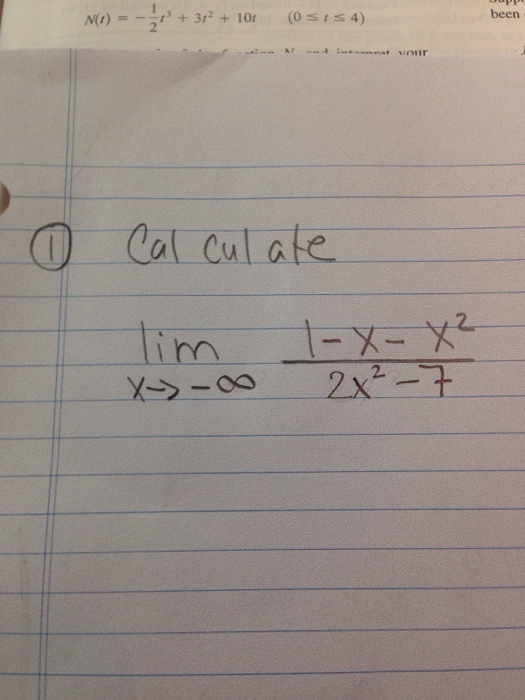 N(t) = -1/2 t³ + 3t² + 10t (0 ≤ t ≤ 4)
been
your
① Calculate
lim x→-∞ (1-x-x²)/(2x²-7)